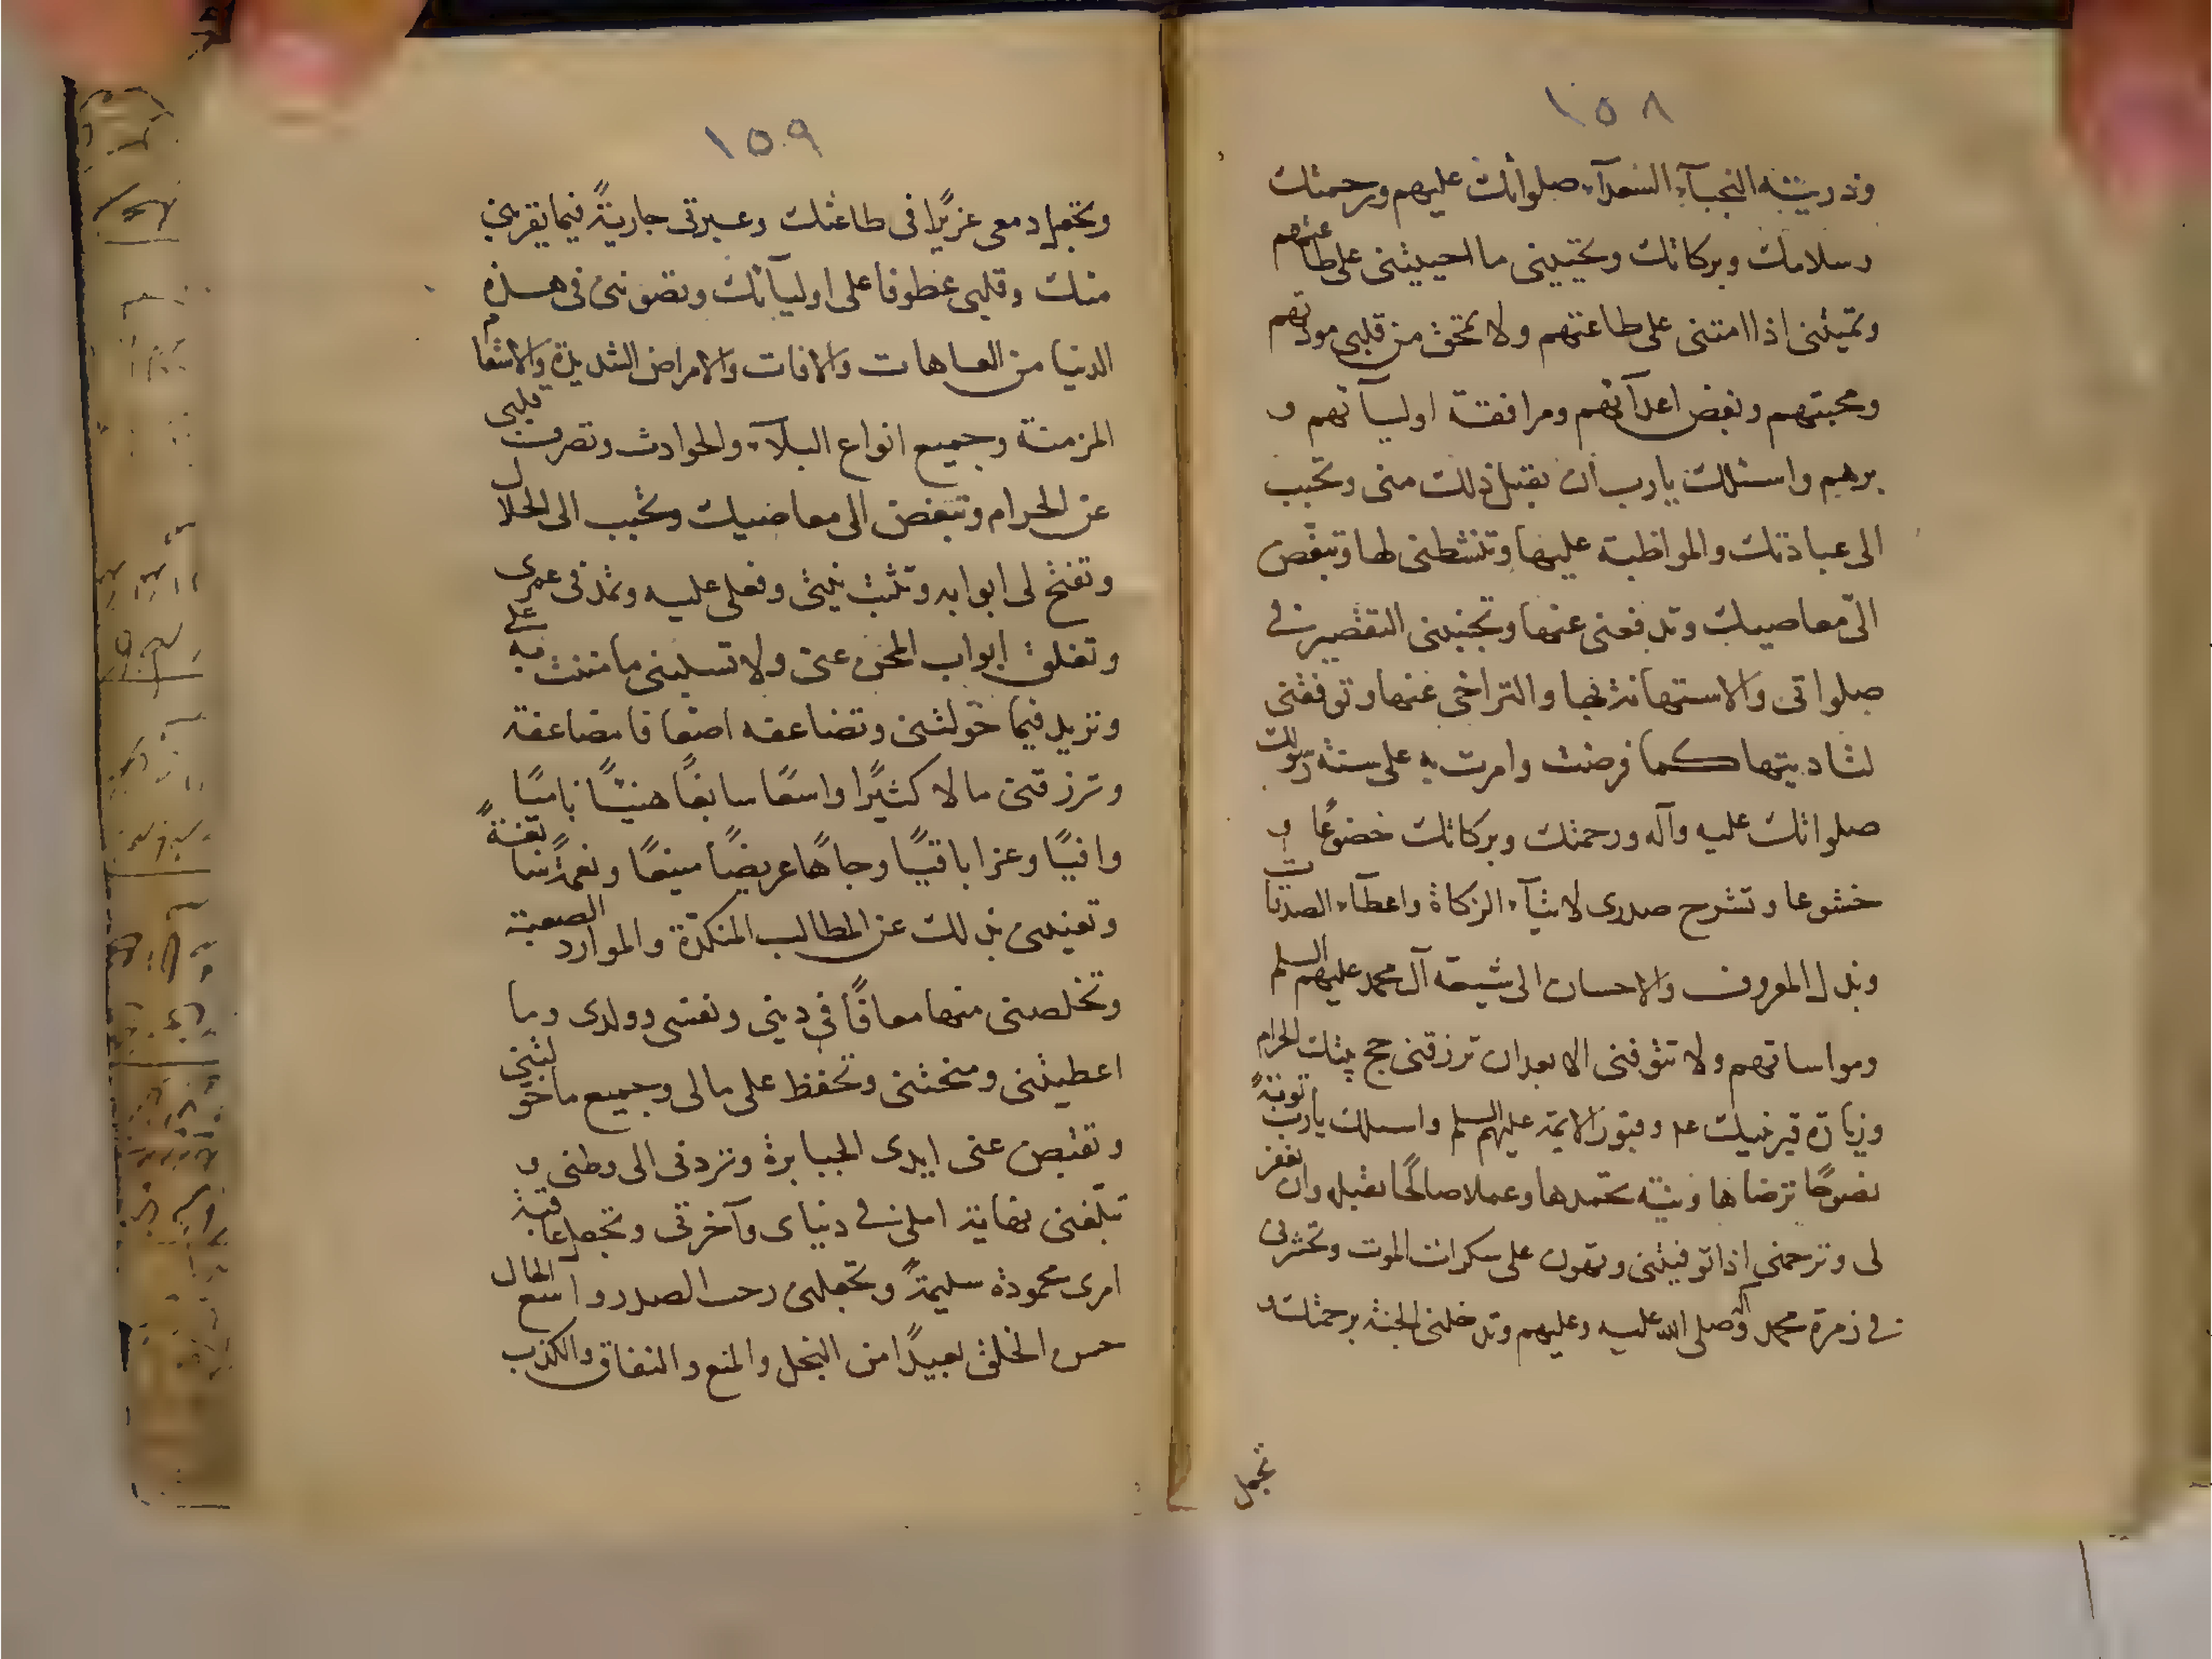 ١٥٨
وذريته النجبآء السعدآء صلواتك عليهم ورحمتك
وسلامك وبركاتك وتحييني ما احييتنى على طاعتهم
وتميتنى اذا امتنى على طاعتهم ولا تمحق من قلبى مودتهم
ومحبتهم وبغض اعدآئهم ومرافقة اوليآئهم و
برهم واسئلك يا رب ان تقبل ذلك منى وتحبب
الى عبادتك والمواظبة عليها وتنشطنى لها وتبغض
الىّ معاصيك وتدفعنى عنها وتجنبنى التقصير فى
صلواتى والاستهانة بها والتراخى عنها وتوفقنى
لتاديتها كما فرضت وامرت به على سنة رسولك
صلواتك عليه وآله ورحمتك وبركاتك خضوعًا و
خشوعا وتشرح صدرى لايتآء الزكاة واعطآء الصدقات
وبذل المعروف والاحسان الى شيعة آل محمد عليهم السلم
ومواساتهم ولا تتوفنى الا بعد ان ترزقنى حج بيتك الحرام
وزيارة قبر نبيك عم وقبور الائمة عليهم السلم واسئلك يا رب توبةً
نصوحًا ترضاها ونية تحمدها وعملا صالحًا تقبله وان تغفر
لى وترحمنى اذا توفيتنى وتهون على سكرات الموت وتحشرنى
فى زمرة محمد وآله صلى الله عليه وعليهم وتدخلنى الجنة برحمتك و
تجعل
١٥٩
وتجعل دمعى غزيرًا فى طاعتك وعبرتى جاريةً فيما يقربنى
منك وقلبى عطوفا على اوليآئك وتصوننى فى هذه
الدنيا من العاهات والافات والامراض الشديدة والاسقام
المزمنة وجميع انواع البلآء والحوادث وتصرف قلبى
عن الحرام وتبغض الى معاصيك وتحبب الى الحلال
وتفتح لى ابوابه وتثبت نيتى وفعلى عليه وتمد فى عمرى
وتغلق ابواب المحن عنى ولا تسلبنى ما مننت به على
وتزيد فيما خولتنى وتضاعفه اضعافا مضاعفة
وترزقنى مالا كثيرًا واسعًا سابغًا هنيئًا ناميًا
وافيًا وعزا باقيًا وجاهًا عريضًا منيعًا ونعمةً سابغةً
وتغنينى بذلك عن المطالب المنكدة والموارد الصعبة
وتخلصنى منها معافًا فى دينى ونفسى وولدى وما
اعطيتنى ومنحتنى وتحفظ على مالى وجميع ما خولتنى
وتقبض عنى ايدى الجبابرة وتردنى الى وطنى و
تبلغنى نهاية املى فى دنياى وآخرتى وتجعل عاقبة
امرى محمودة سليمةً وتجعلنى رحب الصدر واسع الحال
حسن الخلق بعيدًا من البخل والمنع والنفاق والكذب